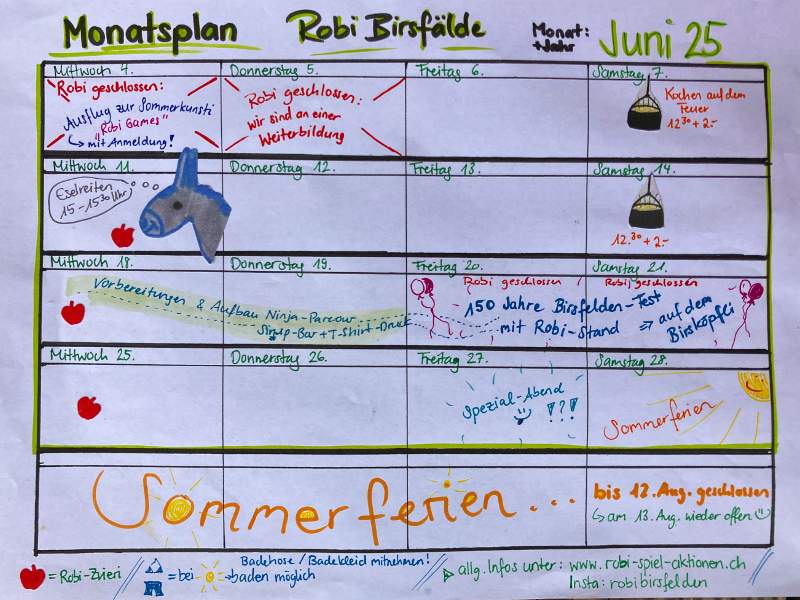 Monatsplan Robi Birsfälde Monat: + Jahr Juni 25
Mittwoch 4. Donnerstag 5. Freitag 6. Samstag 7.
Robi geschlossen:
Ausflug zur Sommerkunsti
"Robi Games"
↳ mit Anmeldung!
Robi geschlossen:
wir sind an einer
Weiterbildung
Kochen auf dem
Feuer
12³⁰ + 2.-
Mittwoch 11. Donnerstag 12. Freitag 13. Samstag 14.
Eselreiten
15 - 15³⁰ Uhr
12.³⁰ + 2.-
Mittwoch 18. Donnerstag 19. Freitag 20. Samstag 21.
Vorbereitungen & Aufbau Ninja-Parcour
Sirup-Bar + T-Shirt-Druck
Robi geschlossen Robi geschlossen
150 Jahre Birsfelden-Fest
mit Robi-Stand ⇒ auf dem
Birsköpfli
Mittwoch 25. Donnerstag 26. Freitag 27. Samstag 28.
Spezial-Abend
!?!?
Sommerferien
Sommerferien...
bis 12. Aug. geschlossen
↳ am 13. Aug. wieder offen
= Robi-Zvieri
Badehose / Badekleid mitnehmen!
= bei → baden möglich
allg. Infos unter: www.robi-spiel-aktionen.ch
Insta: robibirsfelden